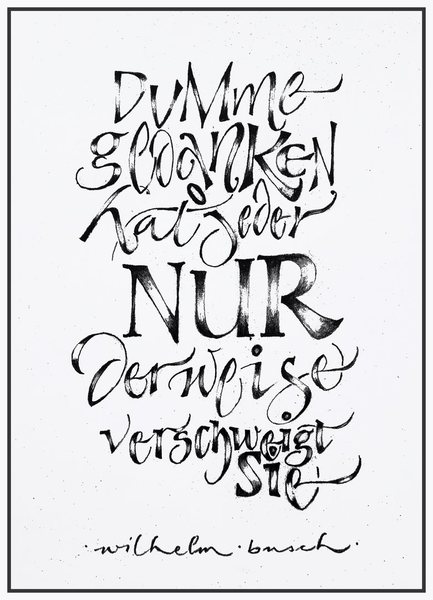 DuMme
geDanKeN
hat jeder
NUR
der weise
verschweigt
Sie
· wilhelm · busch ·